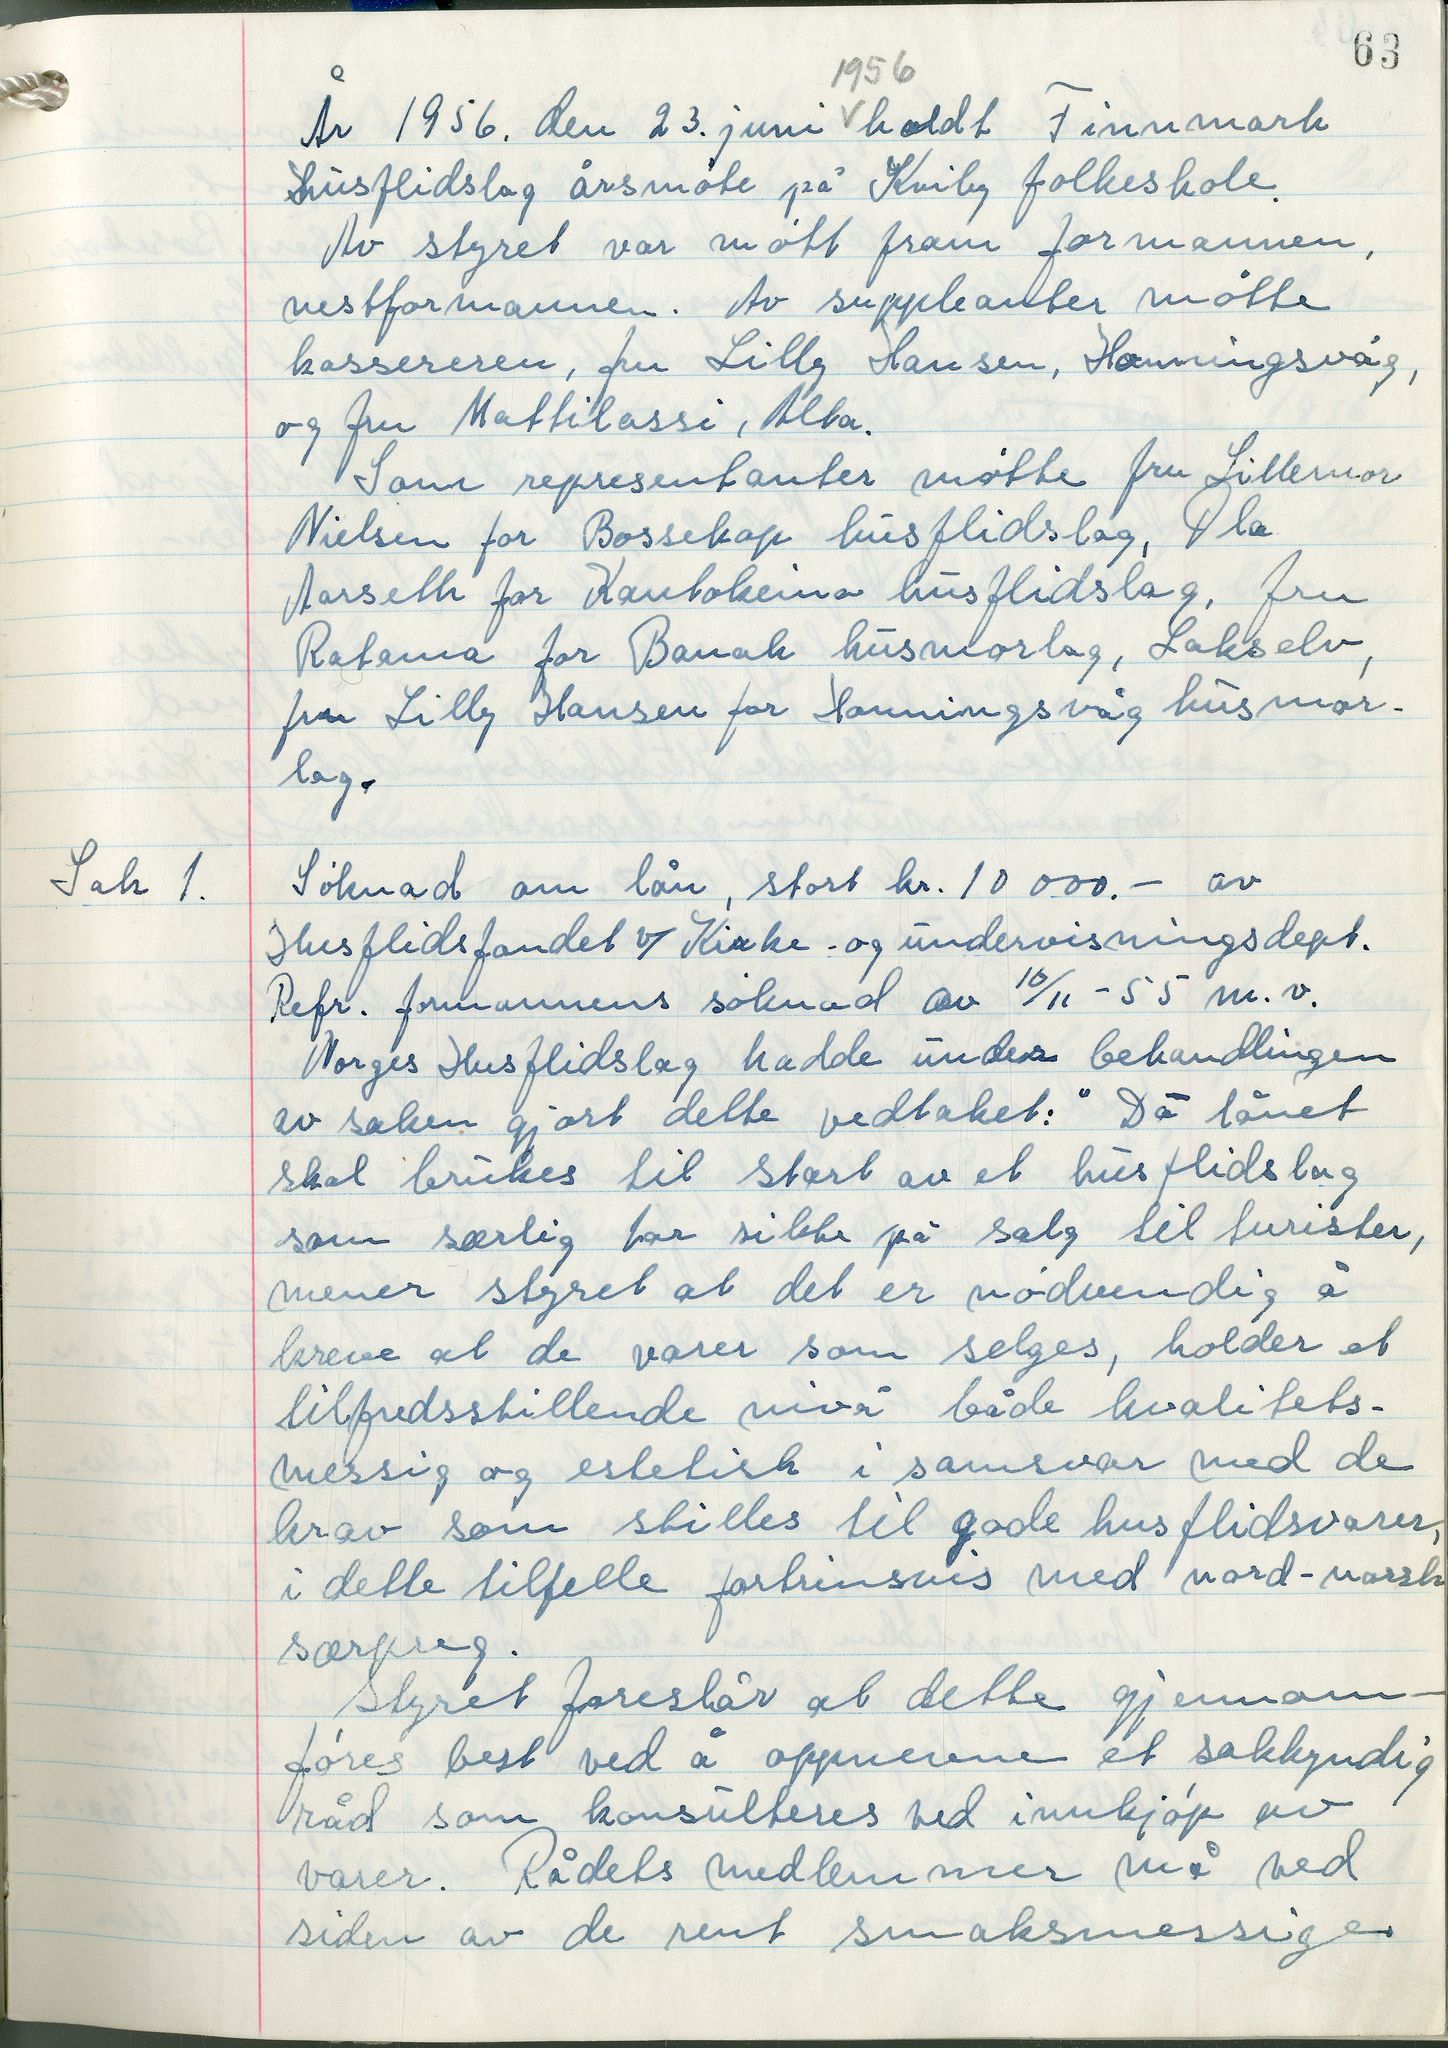 63
1956
År 1956. den 23. juni holdt Finnmark
Husflidslag årsmøte på Kviby folkeskole.
Av styret var møtt fram formannen,
nestformannen. Av suppleanter møtte
kassereren, fru Lilly Hansen, Honningsvåg,
og fru Mattilassi, Alta.
Som representanter møtte fru Lillemor
Nielsen for Bossekop husflidslag, Ola
Aarseth for Kautokeino husflidslag, fru
Ratama for Banak husmorlag, Lakselv,
fru Lilly Hansen for Honningsvåg husmor-
lag.
Sak 1. Søknad om lån, stort kr. 10 000.- av
Husflidsfondet v/ Kirke- og undervisningsdept.
Refr. formannens søknad av 10/11 - 55 m.v.
Norges Husflidslag hadde under behandlingen
av saken gjort dette vedtaket: "Då lånet
skal brukes til start av et husflidslag
som særlig tar sikte på salg til turister,
mener styret at det er nødvendig å
kreve at de varer som selges, holder et
tilfredsstillende nivå både kvalitets-
messig og estetisk i samsvar med de
krav som stilles til gode husflidsvarer,
i dette tilfelle fortrinsvis med nord-norsk
særpreg.
Styret foreslår at dette gjennom-
føres best ved å oppnevne et sakkyndig
råd som konsulteres ved innkjøp av
varer. Rådets medlemmer må ved
siden av de rent smaksmessige